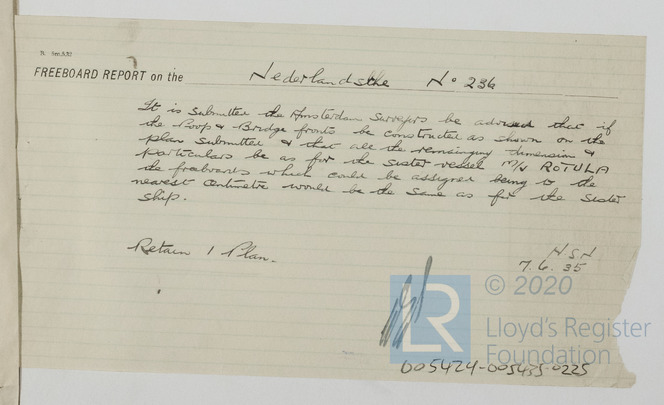 FREEBOARD REPORT on the Nederlandsche No 236
It is submitted the Amsterdam Surveyors be advised that if
the Poop & Bridge fronts be constructed as shown on the
plan submitted & that all the remaining dimensions &
particulars be as for the sister vessel M/V ROTULA
the freeboards which could be assigned being to the
nearest centimetre would be the same as for the sister
ship.
Retain 1 Plan.
7.6.35
© 2020
LR Lloyd's Register
Foundation
005424-005435-0225